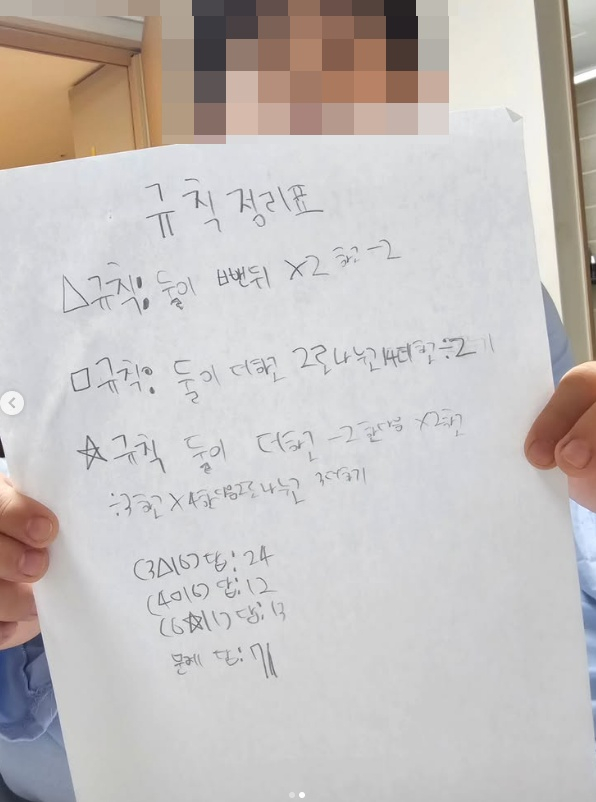 규칙정리표
△규칙: 둘이 뺀뒤 ×2 하고 -2
□규칙: 둘이 더하고 2로나누고 14더하고 ÷2
☆규칙 둘이 더하고 -2 한다음 ×2하고
÷3하고 ×4한다음 2로나누고 3더하기
(3△16) 답: 24
(4□16) 답: 12
(6☆11) 답: 13
문제 답: 71